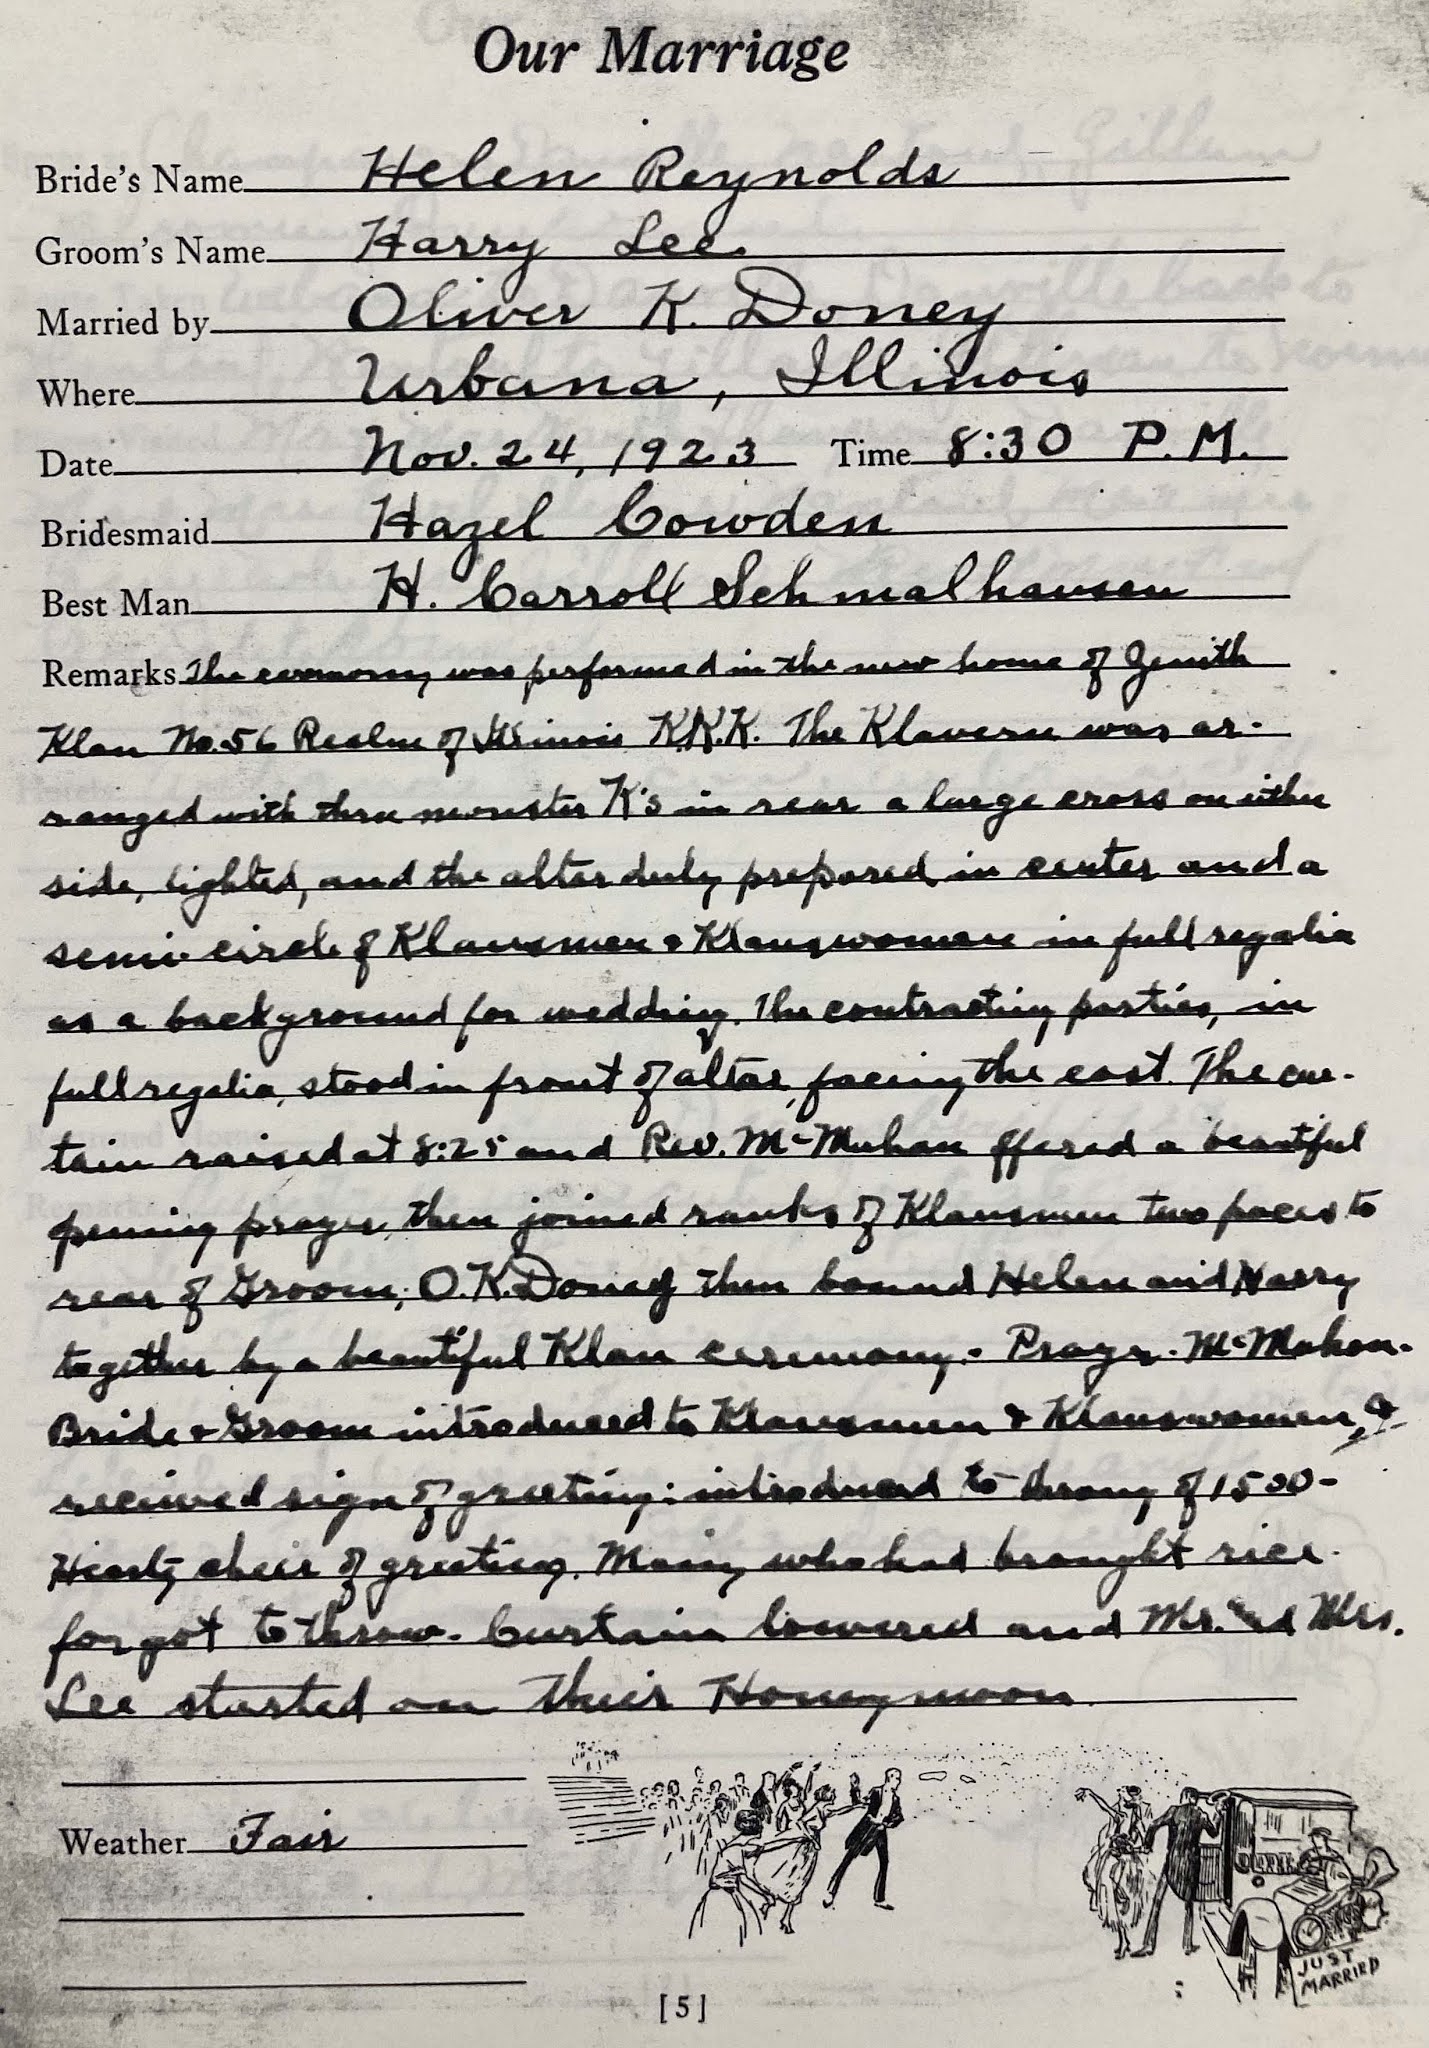 Our Marriage
Bride's Name Helen Reynolds
Groom's Name Harry Lee
Married by Oliver K. Doney
Where Urbana, Illinois
Date Nov. 24, 1923 Time 8:30 P.M.
Bridesmaid Hazel Cowden
Best Man H. Carroll Schmalhausen
Remarks The ceremony was performed in the new home of Zenith
Klan No. 56 Realm of Illinois K.K.K. The Klavern was ar-
ranged with three monster K's in rear a large cross on either
side, lighted, and the alter duly prepared in center and a
semi-circle of Klansmen & Klanswomen in full regalia
as a background for wedding. The contracting parties, in
full regalia, stood in front of altar, facing the east. The cur-
tain raised at 8:25 and Rev. McMahan offered a beautiful
opening prayer, then joined ranks of Klansmen two paces to
rear of Groom; O.K. Doney then bound Helen and Harry
together by a beautiful Klan ceremony.- Prayer. McMahon.
Bride & Groom introduced to Klansmen & Klanswomen, &
received sign of greeting: introduced to throng of 1500-
Hearty cheir of greeting. Many who had brought rice
forgot to throw. Curtain lowered and Mr. and Mrs.
Lee started on their Honeymoon.
Weather Fair
JUST
MARRIED
[5]